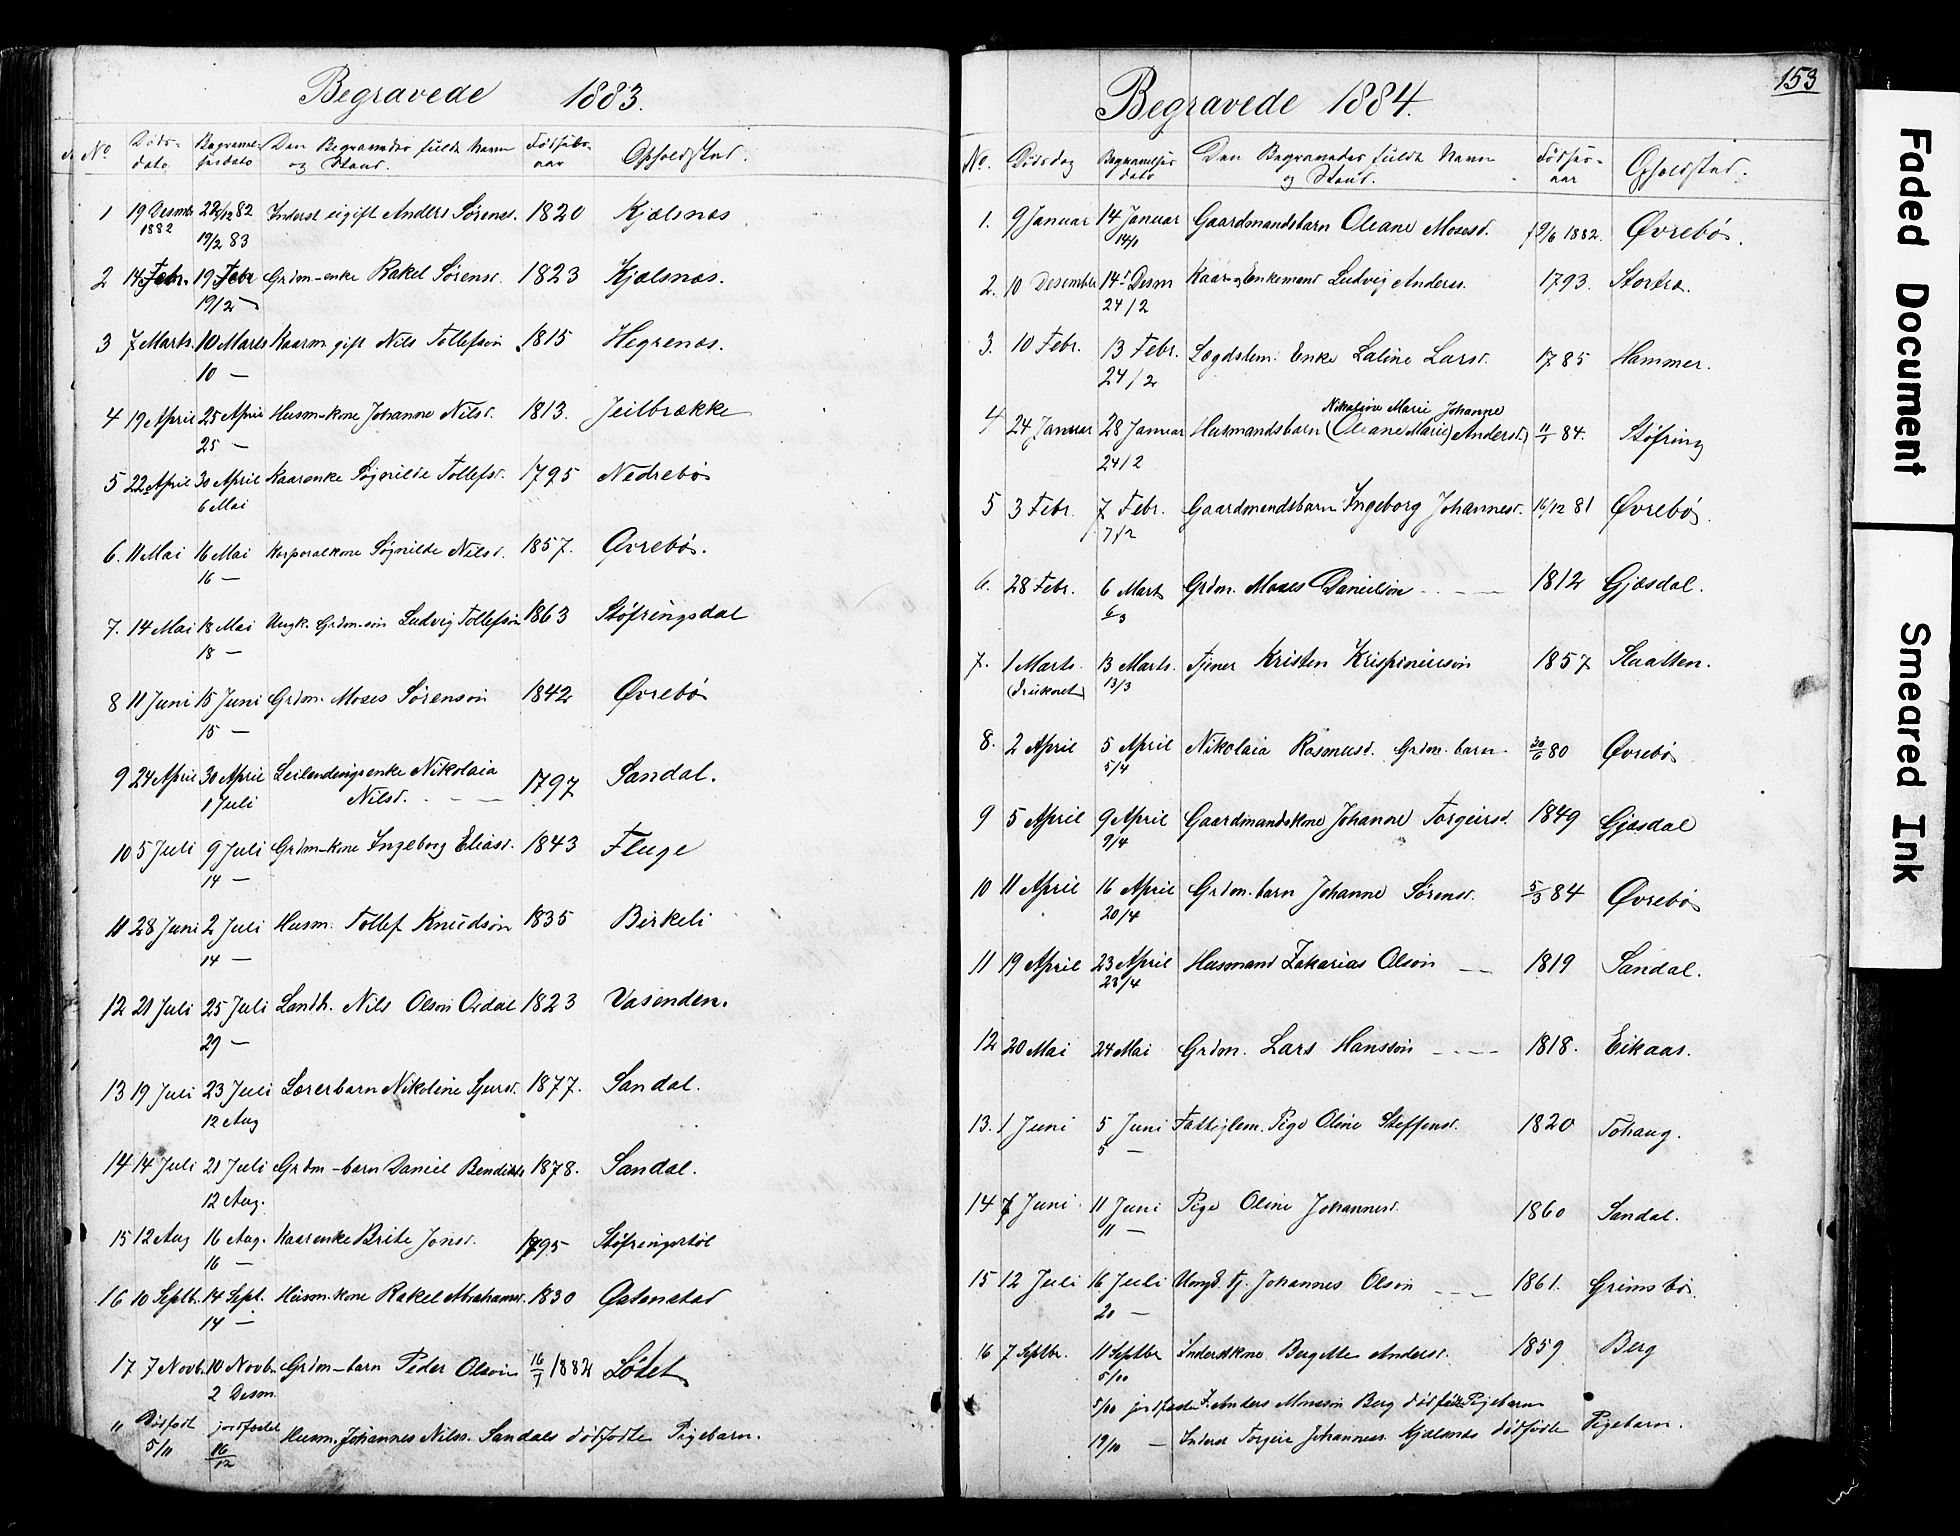 Begravede 1883.
No Døds-dato Begravelsesdato Den Begravedes fulde Navn og Stand. Fødselsaar Opholdsted.
1 19 Desembr 1882 22/12 82 Inderst ugift Anders Sørens. 1820 Kjølsnæs
19/2 83
2 14 Febr. 19 Febr Grdm-enke Rakel Sørensd. 1823 Kjølsnæs.
19/2
3 7 Marts. 10 Marts Kaarm gift Nils Tollefsøn 1815 Hegrenæs.
10 —
4 19 April 25 April Husm-kone Johanne Nilsd. 1813. Jeilbrække
25 —
5 22 April 30 April Kaarenke Søgnilde Tollefsd. 1795 Nedrebø
6 Mai
6. 11 Mai 16 Mai Korporalkone Søgnilde Nilsd. 1857. Øvrebø.
16 —
7. 14 Mai 18 Mai Ungk. Grdm.søn Ludvig Tollefsøn 1863 Støfringsdal
18 —
8 11 Juni 15 Juni Grdm. Moses Sørensøn 1842 Øvrebø
15 —
9 24 April 30 April Leilendingsenke Nikolaia 1797 Sandal.
1 Juli Nilsd. - - —
10 5 Juli 9 Juli Grdm-kone Ingeborg Eliasd. 1843 Fluge
14 —
11 28 Juni 2 Juli Husm. Tollef Knudsøn 1835 Birkeli
14 —
12 21 Juli 25 Juli Landh. Nils Olsøn Årdal 1823 Vasenden.
29 —
13 19 Juli 23 Juli Lærerbarn Nikoline Sjursd. 1877. Sandal.
12 Aug
14 14 Juli 21 Juli Grdm-barn Daniel Bendikts 1878. Sandal.
12 Aug.
15 12 Aug 16 Aug. Kaarenke Brite Jonsd. 1795 Støfringsstøl
16 —
16 10 Septb. 14 Sept. Husm.kone Rakel Abrahamsd. 1830 Østenstad
14 —
17 7 Novb. 10 Novb. Grdm-barn Peder Olsøn 16/7 1882 Lødet
2 Desm.
" Dødfødt 5/11 jordfæstet 16/12 Husm. Johannes Nilss. Sandals dødfødte Pigebarn.
153
Begravede 1884.
No. Dødsdag Begravelsesdato Den Begravedes fulde Navn og Stand. Fødselsaar Opholdsted.
1. 9 Januar 14 Januar Gaardmandsbarn Oleane Mosesd. f 9/6 1882. Øvrebø.
14/1
2. 10 Desember 14 Desm Kaar og Enkemand Ludvig Anderss. 1793. Stortræ.
24/2
3. 10 Febr. 13 Febr. Lægdslem. Enke Laline Larsd. 1785 Hammer.
24/2
Nikoline Marie Johanne
4 24 Januar 28 Januar Husmandsbarn (Oleane Marie) Andersd. 11/1 84. Støfring
24/2
5 3 Febr. 7 Febr. Gaardmandsbarn Ingeborg Johannesd. 16/12 81 Øvrebø.
7/2
6. 28 Febr. 6 Mart Grdm. Moses Danielsøn - - — 1812 Gjæsdal.
6/3
7. 1 Marts. 13 Marts. Tjener Kristen Krispinussøn 1857 Slaatten.
(druknet) 13/3
8. 2 April 5 April Nikolaia Rasmusd. Grdm. barn 30/6 80 Øvrebø
5/4
9 5 April 9 April Gaardmandskone Johanne Torgeirsd. 1849 Gjæsdal
9/4
10 11 April 16 April Grdm.barn Johanne Sørensd. 5/3 84 Øvrebø
20/4
11 19 April 23 April Husmand Zakarias Olsøn — 1819 Sandal.
23/4
12 20 Mai 24 Mai Grdm. Lars Hanssøn - - — 1818. Eikaas.
13. 1 Juni 5 Juni Fattiglem. Pige Oline Steffensd. 1820 Tohaug.
5 —
14 7 Juni 11 Juni Pige Oline Johannesd. 1860 Sandal.
11 —
15 12 Juli 16 Juli Ungk. tj. Johannes Olsøn - - — 1861. Grimsbø.
20 —
16 7 Septbr. 11 Septbr Inderstkone Bergitte Andersd. 1859 Berg
5/10
5/10 jordfæstet Anders Monssøn Berg dødfødte Pigebarn
19/10 — Inderst Torgeir Johanness. Kjølsnæs dødfødte Pigebarn.
Faded Document
Smeared Ink